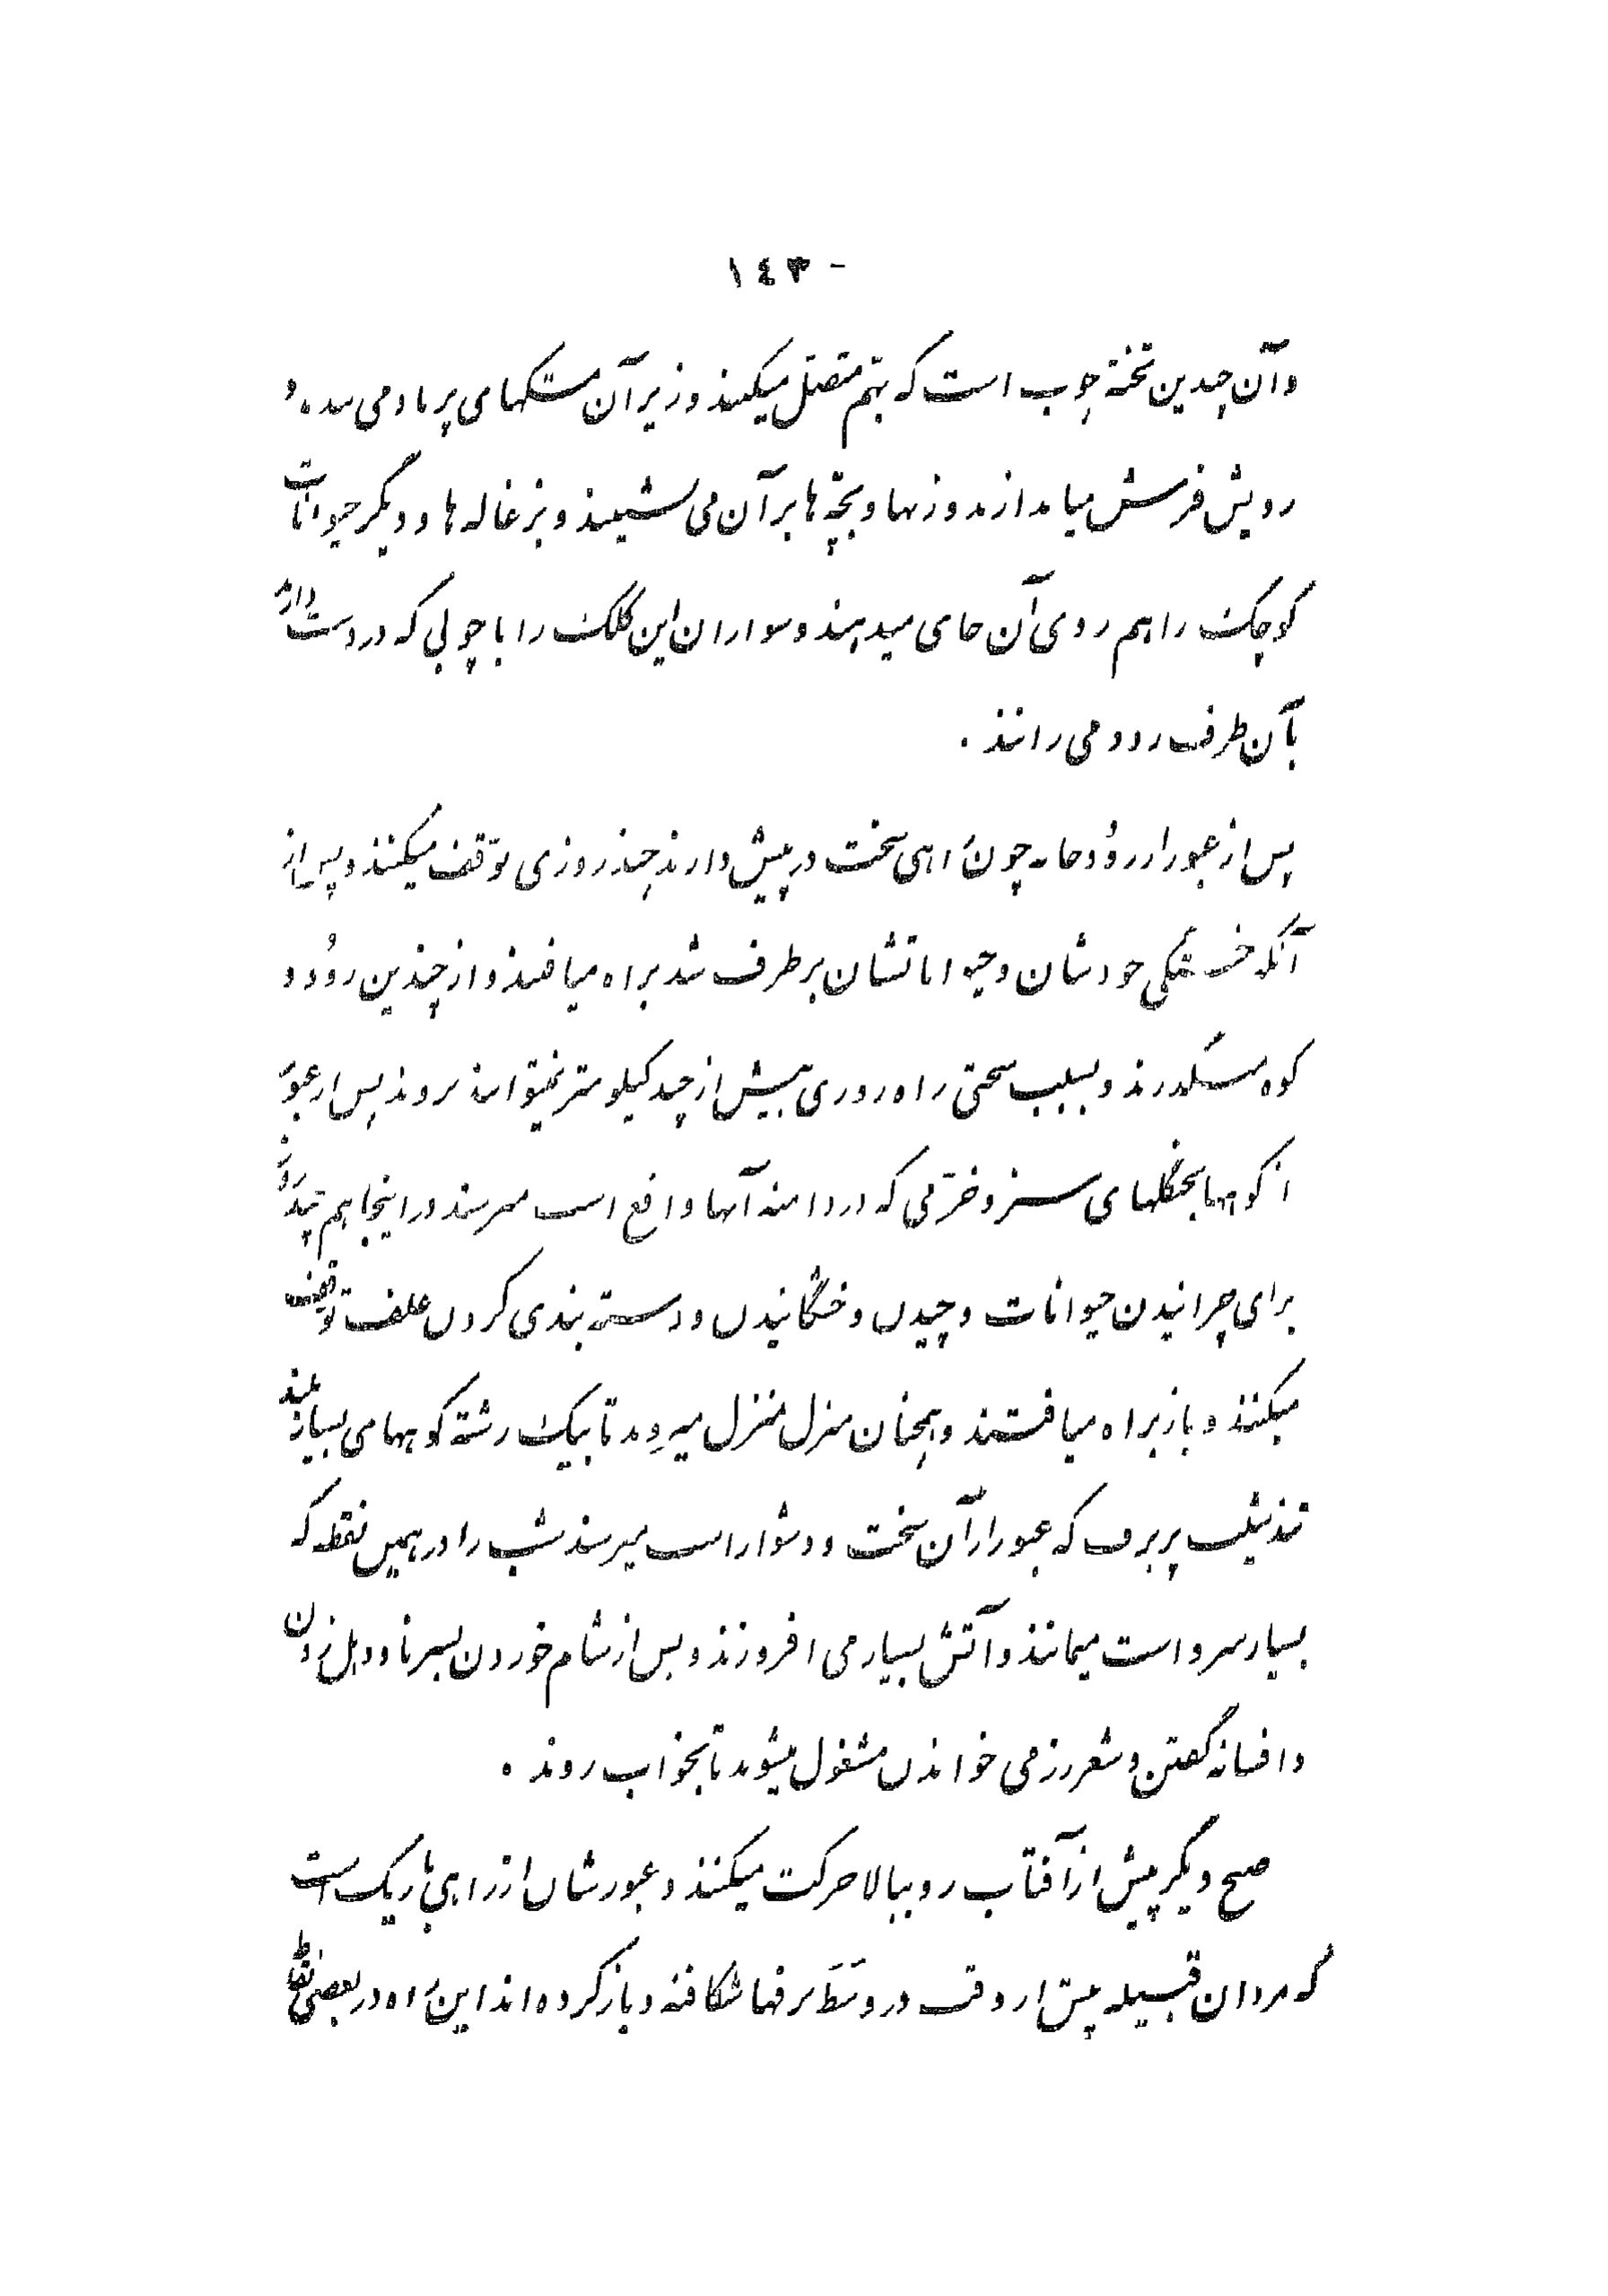 - ۱۴۳
و آن چندین تخته چوب است که بهم متصل میکنند و زیر آن مشکهای پر باد می بندند و
رویش فرش میاندازند و زنها و بچّه ها بر آن می نشینند و بزغاله ها و دیگر حیوانات
کوچک را هم روی آن جای میدهند و سواران این کلک را با چوبی که در دست دارند
بآن طرف رود می رانند .
پس از عبور از رودخانه چون راهی سخت در پیش دارند چند روزی توقف میکنند و پس از
آنکه خستگی خودشان و حیواناتشان برطرف شد براه میافتند و از چندین رود و
کوه میگذرند و بسبب سختی راه روزی بیش از چند کیلومتر نمیتوانند بروند پس از عبور
از کوهها بجنگلهای سبز و خرّمی که در دامنه آنها واقع است میرسند در اینجا هم چند روز
برای چرانیدن حیوانات و چیدن و خشکانیدن و دسته بندی کردن علف توقف
میکنند و باز براه میافتند و همچنان منزل بمنزل میروند تا بیک رشته کوههای بسیار بلند
تند شیب پر برف که عبور از آن سخت و دشوار است میرسند شب را در همین نقطه که
بسیار سرد است میمانند و آتش بسیار می افروزند و پس از شام خوردن بسرنا و دهل زدن
و افسانه گفتن و شعر رزمی خواندن مشغول میشوند تا بخواب روند .
صبح دیگر پیش از آفتاب رو ببالا حرکت میکنند و عبورشان از راهی باریک است
که مردان قبیله پیش از وقت در وسط برفها شکافته و باز کرده اند این راه در بعضی نقاط